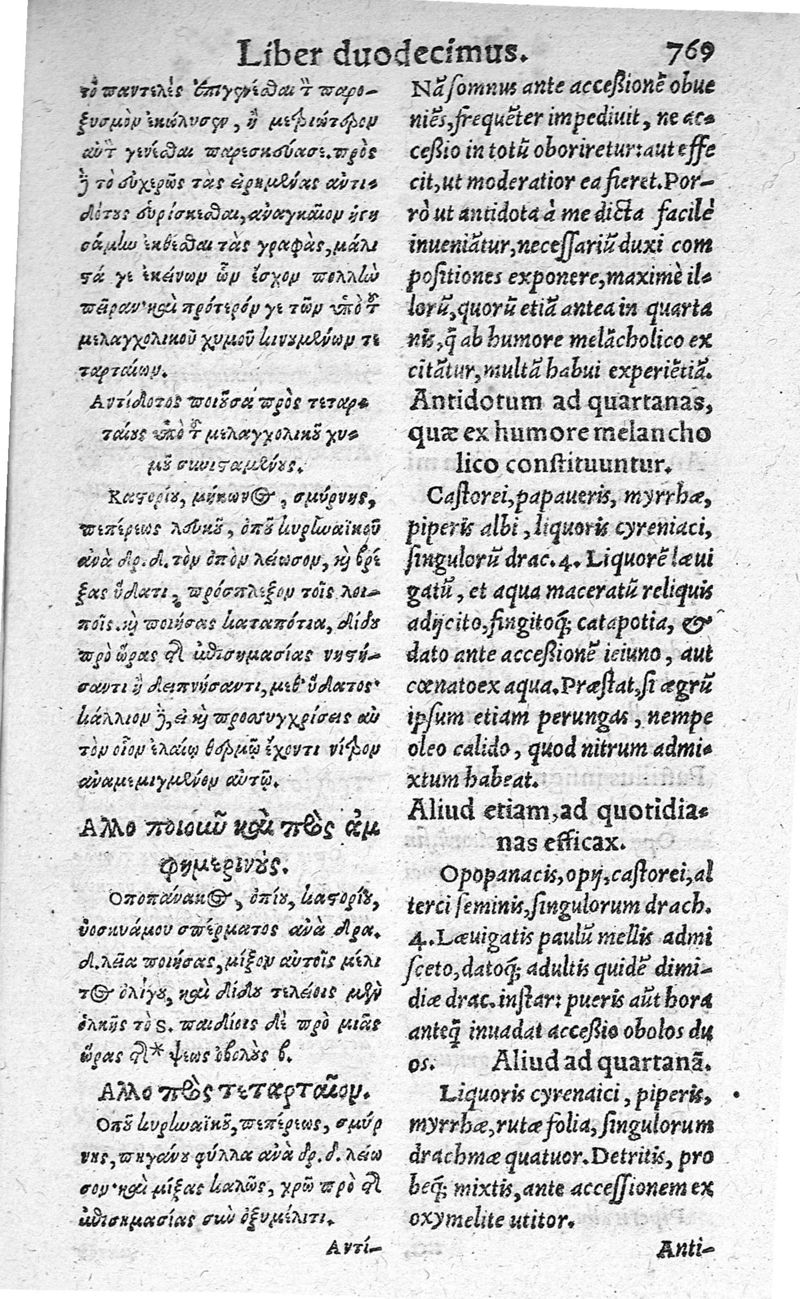 Liber duodecimus. 769
τὸ παντελὲς ἐπιγενέσθαι τ παρο-
ξυσμὸν ἐκώλυσεν, ἢ μετριώτερον
αὐτ γενέσθαι παρεσκεύασε. πρὸς
ἢ τὸ εὐχερῶς τὰς εἰρημένας ἀντι-
δότους εὑρίσκεσθαι, ἀναγκαῖον ἡγη
σάμην ἐκθέσθαι τὰς γραφὰς, μάλι
στά γε ἐκείνων ὧν ἔσχον πολλὴν
πεῖραν· καὶ πρότερόν γε τῶν ὑπὸ τ
μελαγχολικοῦ χυμοῦ κινουμένων τε
ταρταίων.
Αντίδοτος ποιοῦσα πρὸς τεταρ-
ταίους ὑπὸ τ μελαγχολικοῦ χυ-
μοῦ συνισταμένους.
Καστορίου, μήκωνος, σμύρνης,
πεπέρεως λευκοῦ, ὀποῦ κυρηναϊκοῦ
ἀνὰ δρ. δ. τὸν ὀπὸν λείωσον, καὶ βρέ
ξας ὕδατι, πρόσπλεξον τοῖς λοι-
ποῖς. καὶ ποιήσας καταπότια, δίδου
πρὸ ὥρας τ ἐπισημασίας νηστή-
σαντι ἢ δειπνήσαντι, μεθ' ὕδατος·
κάλλιον ἢ, εἰ καὶ προσυγχρίσεις αὐ
τὸν οἷον ἐλαίῳ θερμῷ ἔχοντι νίτρον
ἀναμεμιγμένον αὐτῷ.
Αλλο ποιοῦν καὶ πρὸς ἀμ
φημερινούς.
Οποπάνακος, ὀπίου, καστορίου,
ὑοσκυάμου σπέρματος ἀνὰ δρα.
δ. λεῖα ποιήσας, μίξον αὐτοῖς μέλι
τος ὀλίγου, καὶ δίδου τελείοις μὲν
ὁλκῆς τὸ s. παιδίοις δὲ πρὸ μιᾶς
ὥρας τ * ψεως ὀβολοὺς β.
Αλλο πρὸς τεταρταῖον.
Οποῦ κυρηναϊκοῦ, πεπέρεως, σμύρ
νης, πηγάνου φύλλα ἀνὰ δρ. δ. λείω
σον· καὶ μίξας καλῶς, χρῶ πρὸ τ
ἐπισημασίας σὺν ὀξυμέλιτι.
Αντί-
Nā somnus ante accessionē obue
niēs, frequēter impediuit, ne ac-
cessio in totū oboriretur: aut effe
cit, ut moderatior ea fieret. Por-
rò ut antidota à me dicta facilè
inueniātur, necessariū duxi com
positiones exponere, maximè il-
lorū, quorū etiā antea in quarta
nis, q̃ ab humore melācholico ex
citātur, multā habui experiētiā.
Antidotum ad quartanas,
quæ ex humore melancho
lico constituuntur.
Castorei, papaueris, myrrhæ,
piperis albi, liquoris cyreniaci,
singulorū drac. 4. Liquorē læui
gatū, et aqua maceratū reliquis
adijcito, fingitoq; catapotia, &
dato ante accessionē ieiuno, aut
cœnato ex aqua. Præstat, si ægrū
ipsum etiam perungas, nempe
oleo calido, quod nitrum admi-
xtum habeat.
Aliud etiam, ad quotidia-
nas efficax.
Opopanacis, opij, castorei, al
terci seminis, singulorum drach.
4. Læuigatis paulū mellis admi
sceto, datoq; adultis quidē dimi-
diæ drac. instar: pueris aūt hora
anteq̃ inuadat accessio obolos du
os. Aliud ad quartanā.
Liquoris cyrenaici, piperis,
myrrhæ, rutæ folia, singulorum
drachmæ quatuor. Detritis, pro
beq; mixtis, ante accessionem ex
oxymelite utitor.
Anti-